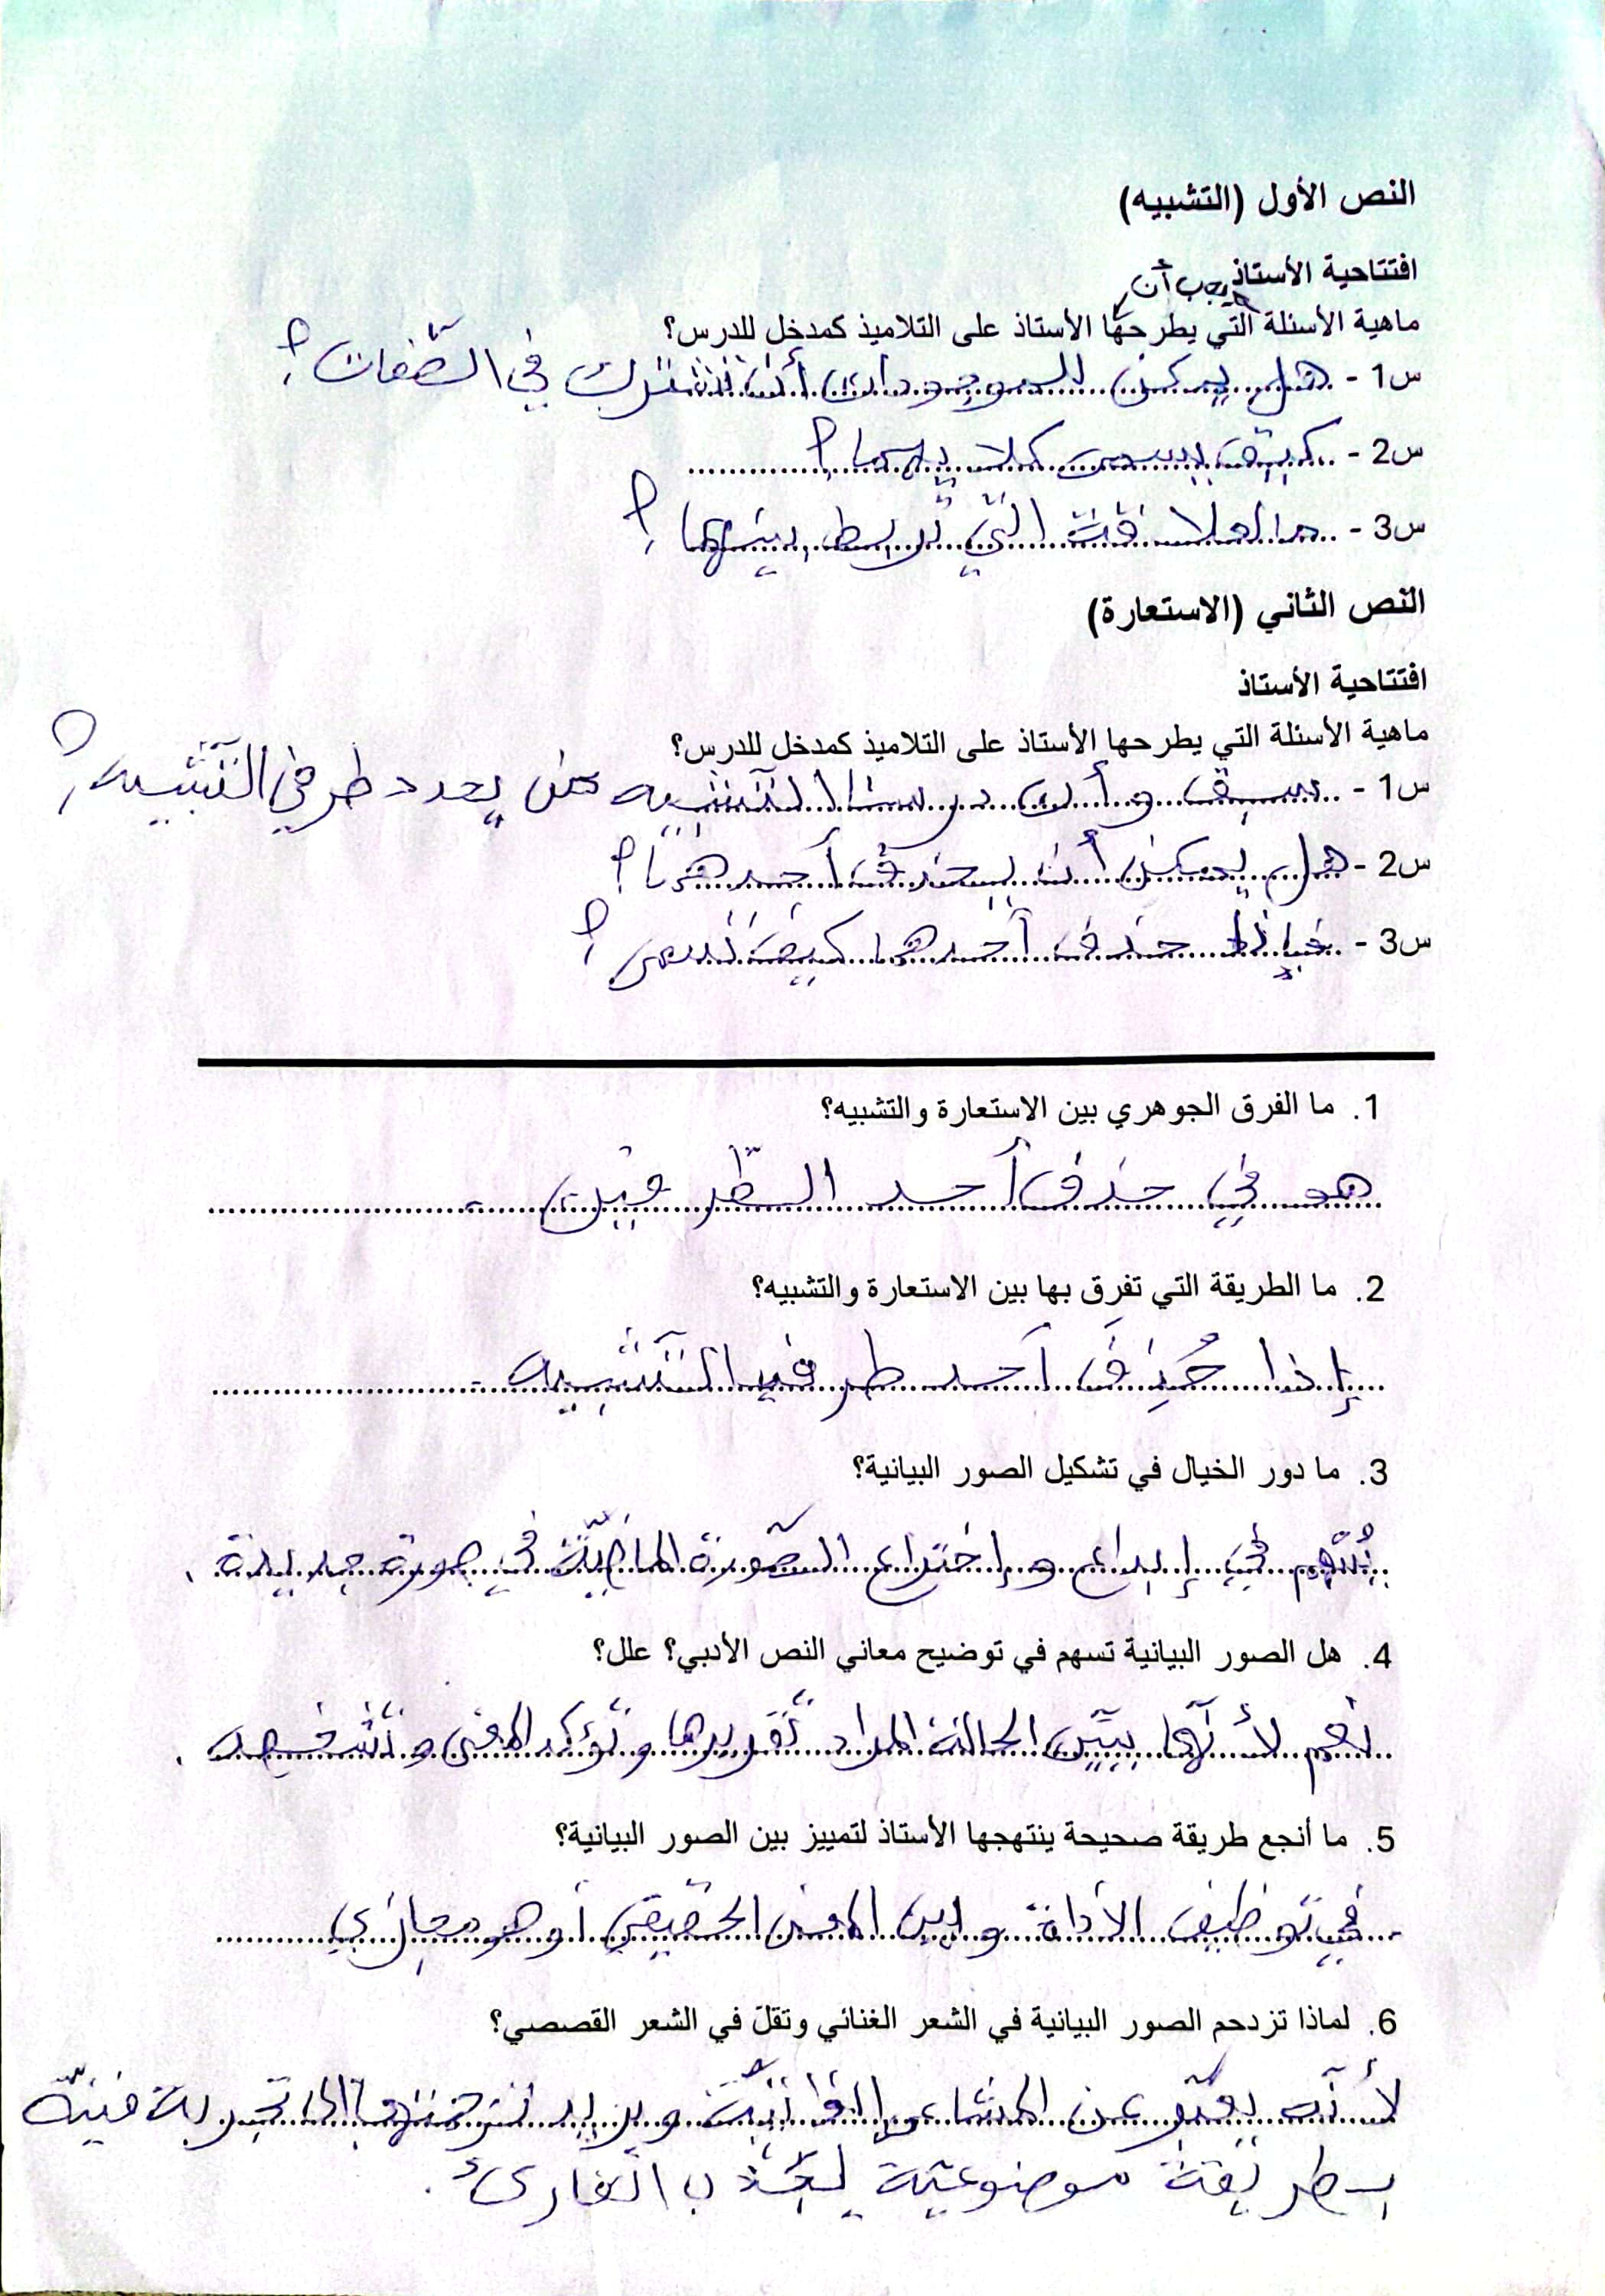 النص الأول (التشبيه)
افتتاحية الأستاذ
يجب أن
ماهية الأسئلة التي يطرحها الأستاذ على التلاميذ كمدخل للدرس؟
س1 - هل يمكن للموجودات أن تشترك في الصّفات؟
س2 - كيف يسمى كلا يهما؟
س3 - ما العلاقة التي تربط بينهما؟
النص الثاني (الاستعارة)
افتتاحية الأستاذ
ماهية الأسئلة التي يطرحها الأستاذ على التلاميذ كمدخل للدرس؟
س1 - سبق وأن درسنا التّشبيه من يحدد طرفي التّشبيه؟
س2 - هل يمكن أن يحذف أحدهما؟
س3 - فإذا حذف أحدهما كيف تسمى؟
1. ما الفرق الجوهري بين الاستعارة والتشبيه؟
هو في حذف أحد الطّرفين.
2. ما الطريقة التي تفرق بها بين الاستعارة والتشبيه؟
إذا حُذِفَ أحد طرفيا التّشبيه.
3. ما دور الخيال في تشكيل الصور البيانية؟
يُسهم في إبداع و إختراع الصّورة الماضيّة في صورة جديدة.
4. هل الصور البيانية تسهم في توضيح معاني النص الأدبي؟ علل؟
نعم لأنّها يبيّن الحالة المراد تقريرها و تؤكد المعنى و تشخصه.
5. ما أنجع طريقة صحيحة ينتهجها الأستاذ لتمييز بين الصور البيانية؟
في توظيف الأداة و بين المعنى الحقيقي أو هو مجازي
6. لماذا تزدحم الصور البيانية في الشعر الغنائي وتقل في الشعر القصصي؟
لأنّه يعبّر عن المشاعر الذّاتيّة و يريد ترجمتها إلى تجربة فنيّة
بطريقة موضوعيّة لجذب القارئ.